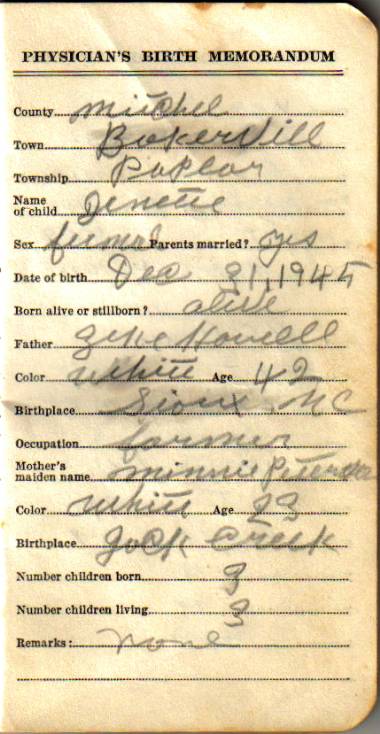 PHYSICIAN'S BIRTH MEMORANDUM
County Mitchel
Town Bakersvill
Township Poplar
Name of child Jenette
Sex female Parents married? yes
Date of birth Dec 21, 1945
Born alive or stillborn? alive
Father Zeke Howell
Color White Age 42
Birthplace Sioux, NC
Occupation farmer
Mother's maiden name Minnie
Color White Age
Birthplace Jack Creek
Number children born 3
Number children living 3
Remarks: none